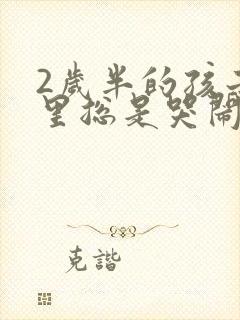 2歲半的孩子
里總是哭鬧
克諧